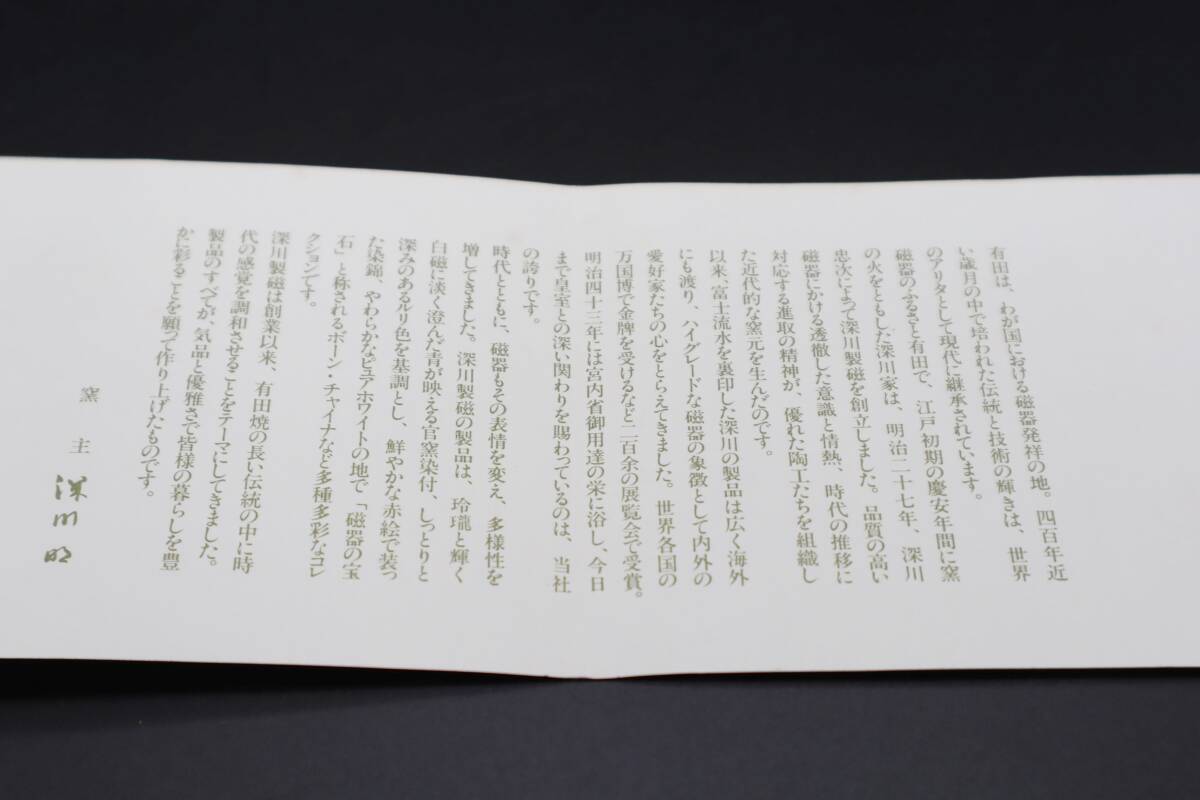 有田は、わが国における磁器発祥の地。四百年近
い歳月の中で培われた伝統と技術の輝きは、世界
のアリタとして現代に継承されています。
磁器のふるさと有田で、江戸初期の慶安年間に窯
の火をともした深川家は、明治二十七年、深川
忠次によって深川製磁を創立しました。品質の高い
磁器にかける透徹した意識と情熱、時代の推移に
対応する進取の精神が、優れた陶工たちを組織し
た近代的な窯元を生んだのです。
以来、富士流水を裏印した深川の製品は広く海外
にも渡り、ハイグレードな磁器の象徴として内外の
愛好家たちの心をとらえてきました。世界各国の
万国博で金牌を受けるなど二百余の展覧会で受賞。
明治四十三年には宮内省御用達の栄に浴し、今日
まで皇室との深い関わりを賜わっているのは、当社
の誇りです。
時代とともに、磁器もその表情を変え、多様性を
増してきました。深川製磁の製品は、玲瓏と輝く
白磁に淡く澄んだ青が映える官窯染付、しっとりと
深みのあるルリ色を基調とし、鮮やかな赤絵で装っ
た染錦、やわらかなピュアホワイトの地で「磁器の宝
石」と称されるボーン・チャイナなど多種多彩なコレ
クションです。
深川製磁は創業以来、有田焼の長い伝統の中に時
代の感覚を調和させることをテーマにしてきました。
製品のすべてが、気品と優雅さで皆様の暮らしを豊
かに彩ることを願って作り上げたものです。
窯主
深川明